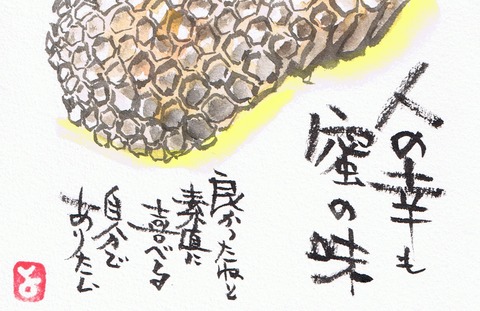 人の幸も
蜜の味
良かったねと
素直に
喜べる
自分で
ありたい